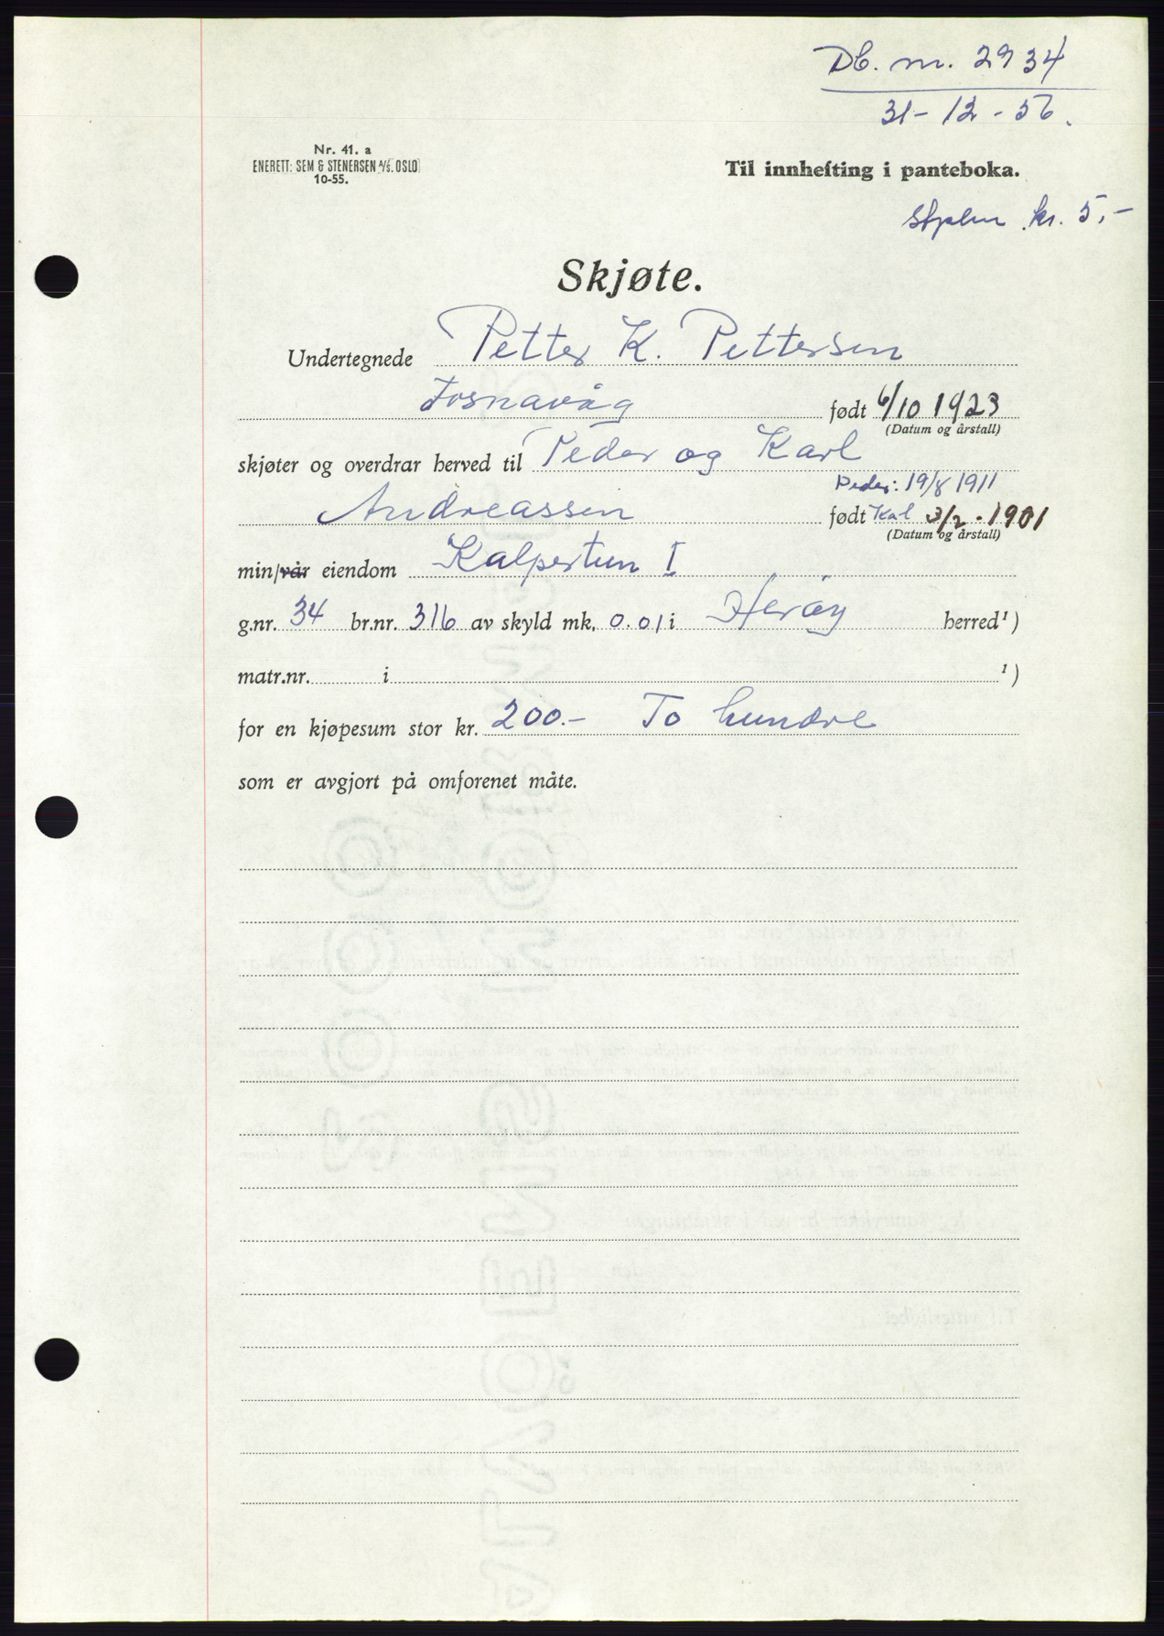 Db. nr. 2934
31-12-56.
Nr. 41. a
ENERETT: SEM & STENERSEN A/S. OSLO
10-55.
Til innhefting i panteboka.
Stplm. kr. 5,-
Skjøte.
Undertegnede Petter K. Pettersen
Fosnavåg født 6/10 1923
(Datum og årstall)
skjøter og overdrar herved til Peder og Karl
Peder: 19/8 1911
Andreassen født Kal 3/2 - 1901
(Datum og årstall)
min/vår eiendom Kalpertun I
g.nr. 34 br.nr. 316 av skyld mk. 0.01 i Herøy herred¹)
matr.nr. i ¹)
for en kjøpesum stor kr. 200.- To hundre
som er avgjort på omforenet måte.